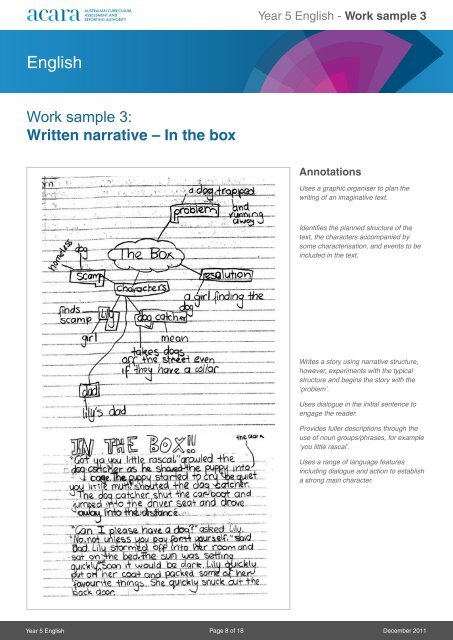 acara AUSTRALIAN CURRICULUM,
ASSESSMENT AND
REPORTING AUTHORITY
Year 5 English - Work sample 3
English
Work sample 3:
Written narrative – In the box
Annotations
Uses a graphic organiser to plan the
writing of an imaginative text.
Identifies the planned structure of the
text, the characters accompanied by
some characterisation, and events to be
included in the text.
Writes a story using narrative structure,
however, experiments with the typical
structure and begins the story with the
'problem'.
Uses dialogue in the initial sentence to
engage the reader.
Provides fuller descriptions through the
use of noun groups/phrases, for example
'you little rascal'.
Uses a range of language features
including dialogue and action to establish
a strong main character.
a dog trapped
and
running
away
problem
The Box
homeless
dog
Scamp
characters
resolution
a girl finding the
dog
finds
scamp
Lily
dog catcher
girl
mean
takes dogs
off the street even
if they have a collar
dad
lily's dad
IN THE BOX!!
"Got ya you little rascal" growled the
dog catcher as he shoved the puppy into
cage. The puppy started to cry "be quiet
you little mutt" shouted the dog catcher.
The dog catcher shut the car boot and
jumped into the driver seat and drove
away into the distance.
"Can I please have a dog?" asked Lily.
"No, not unless you pay for it yourself." said
Dad. Lily stormed off into her room and
sat on the bed. The sun was setting
quickly. Soon it would be dark. Lily quickly
put on her coat and packed some of her
favourite things. She quickly snuck out the
back door.
Year 5 English
Page 8 of 18
December 2011